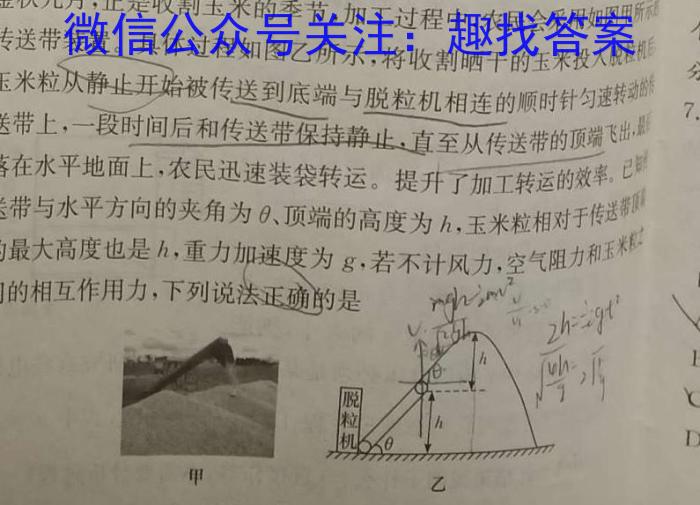 金秋九月,正是收割玉米的季节,加工过程中,农民会采用如图甲所示的
微信公众号关注:趣找答案
传送带装置。具体过程如图乙所示,将收割晒干的玉米投入脱粒机后,
玉米粒从静止开始被传送到底端与脱粒机相连的顺时针匀速转动的传
送带上,一段时间后和传送带保持静止,直至从传送带的顶端飞出,最后
落在水平地面上,农民迅速装袋转运。提升了加工转运的效率。已知传
送带与水平方向的夹角为θ、顶端的高度为h,玉米粒相对于传送带顶端
的最大高度也是h,重力加速度为g,若不计风力,空气阻力和玉米粒之
间的相互作用力,下列说法正确的是
2h=½gt²
h
θ
脱粒机
h
θ
甲
乙
7.
C
D